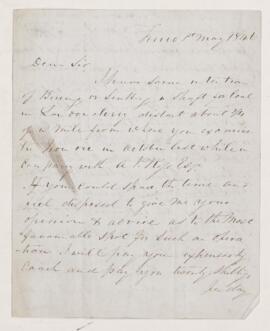 1st May 1846
Dear Sir
I have some intention
of Boring or Sinking a Shaft for Coal
in distant about 3/4
of a mile from where you examined
in October last while in
company with A Esq.
If you could spare the time and
feel disposed to give me your
opinion & advice as to the most
favourable spot for such an Opera
tion I will pay you expenses by
Coach and pay you twenty shillings
per day